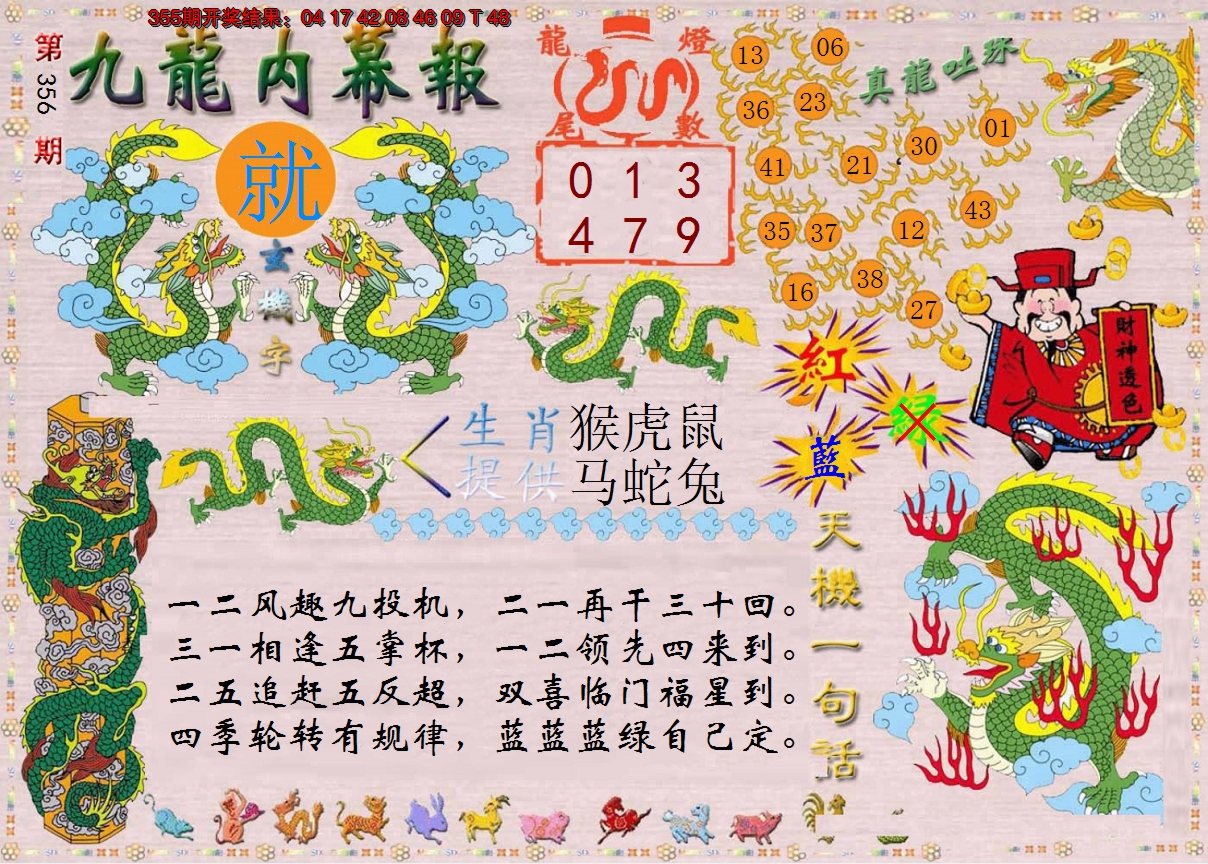 355期开奖结果：04 17 42 08 46 09 T 48
第
356
期
九龍内幕報
就
玄
機
字
龍 燈
尾 數
0 1 3
4 7 9
真龍吐珠
13 06
36 23
01
30
41 21
43
35 37 12
38
16
27
紅
绿
藍
財神透色
生肖 猴虎鼠
提供 马蛇兔
天機一句話
一二风趣九投机，二一再干三十回。
三一相逢五掌杯，一二领先四来到。
二五追赶五反超，双喜临门福星到。
四季轮转有规律，蓝蓝蓝绿自己定。